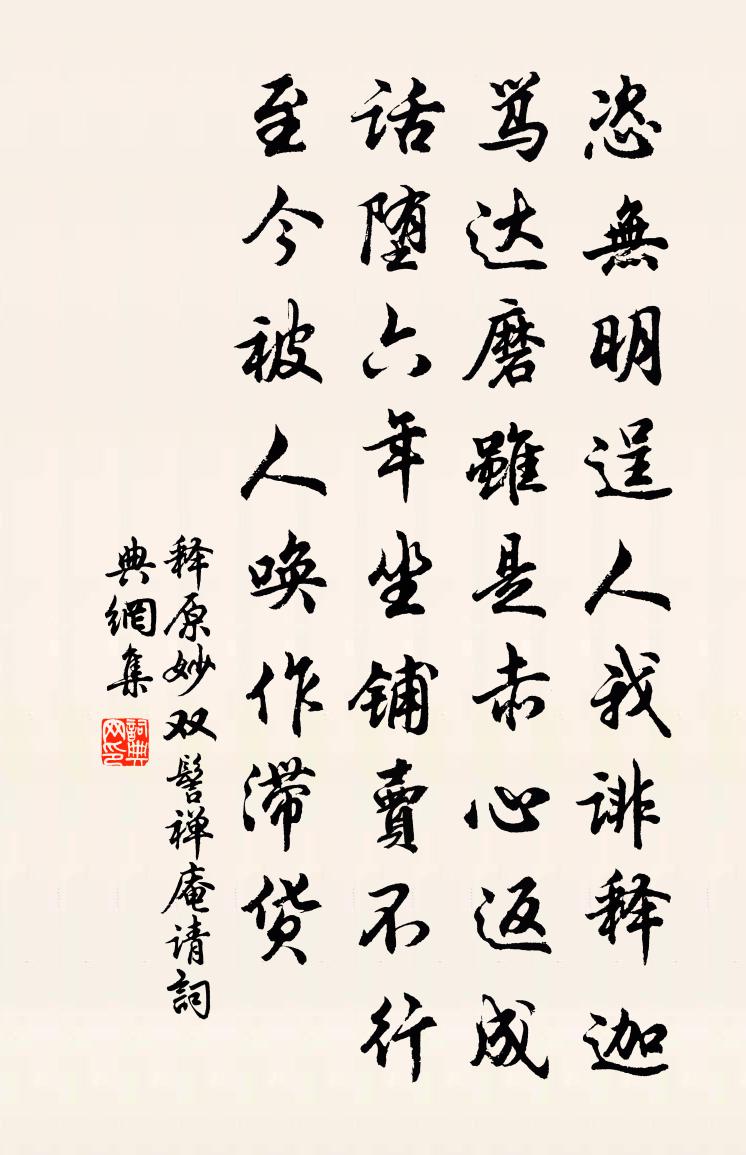 恣無明逞人我诽释迦
骂达磨雖是赤心返成
话堕六年坐铺賣不行
至今被人唤作滞货
释原妙双髻禅庵请詞
典網集
詞典网印